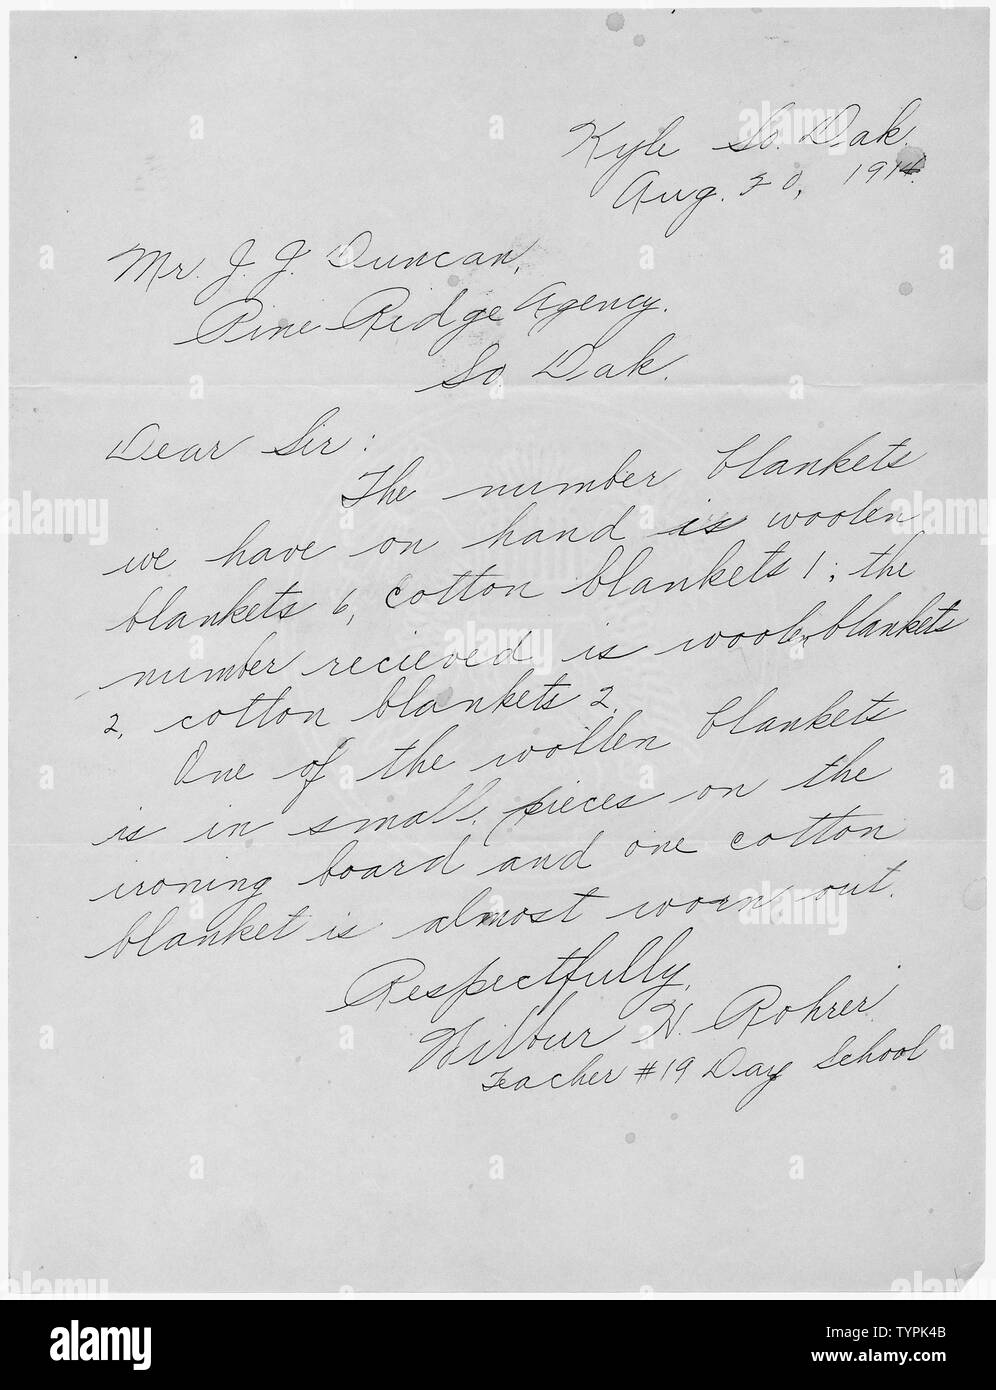 Kyle So. Dak.
Aug. 20, 1914.
Mr. J. J. Duncan,
Pine Ridge Agency.
So. Dak.
Dear Sir:
The number blankets
we have on hand is woolen
blankets 6, cotton blankets 1; the
number recieved is woolen blankets
2, cotton blankets 2.
One of the wollen blankets
is in small pieces on the
ironing board and one cotton
blanket is almost worn out.
Respectfully,
Wilbur H. Rohrer
Teacher #19 Day School
alamy
Image ID: TYPK4B
www.alamy.com